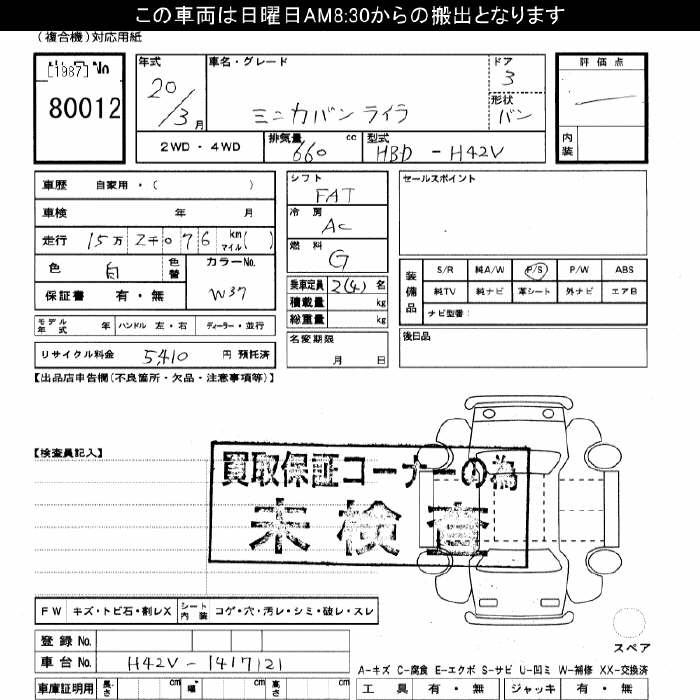 この車両は日曜日AM8:30からの搬出となります
(複合機)対応用紙
[1987] No
80012
年式
20/3月
車名・グレード
ミニカバン ライラ
ドア
3
形状
バン
評価点
内装
2WD・4WD
排気量 660 cc
型式 HBD-H42V
車歴 自家用・( )
車検 年 月
走行 15万2千076 km マイル( )
色 白 色替
カラーNo. W37
保証書 有・無
モデル年式 年 ハンドル 左・右 ディーラー・並行
リサイクル料金 5,410 円 預託済
シフト
FAT
冷房
AC
燃料
G
乗車定員 2(4) 名
積載量 kg
総重量 kg
名変期限
月 日
セールスポイント
装備品
S/R 純A/W P/S P/W ABS
純TV 純ナビ 革シート 外ナビ エアB
ナビ型番:
後日品
【出品店申告欄(不良箇所・欠品・注意事項等)】
【検査員記入】
買取保証コーナーの為
未検査
FW キズ・トビ石・割レX シート内装 コゲ・穴・汚レ・シミ・破レ・スレ
スペア
登録No.
車台No. H42V-1417121
A-キズ C-腐食 E-エクボ S-サビ U-凹ミ W-補修 XX-交換済
車庫証明用 長さ cm 幅 cm 高さ cm
工具 有・無 ジャッキ 有・無